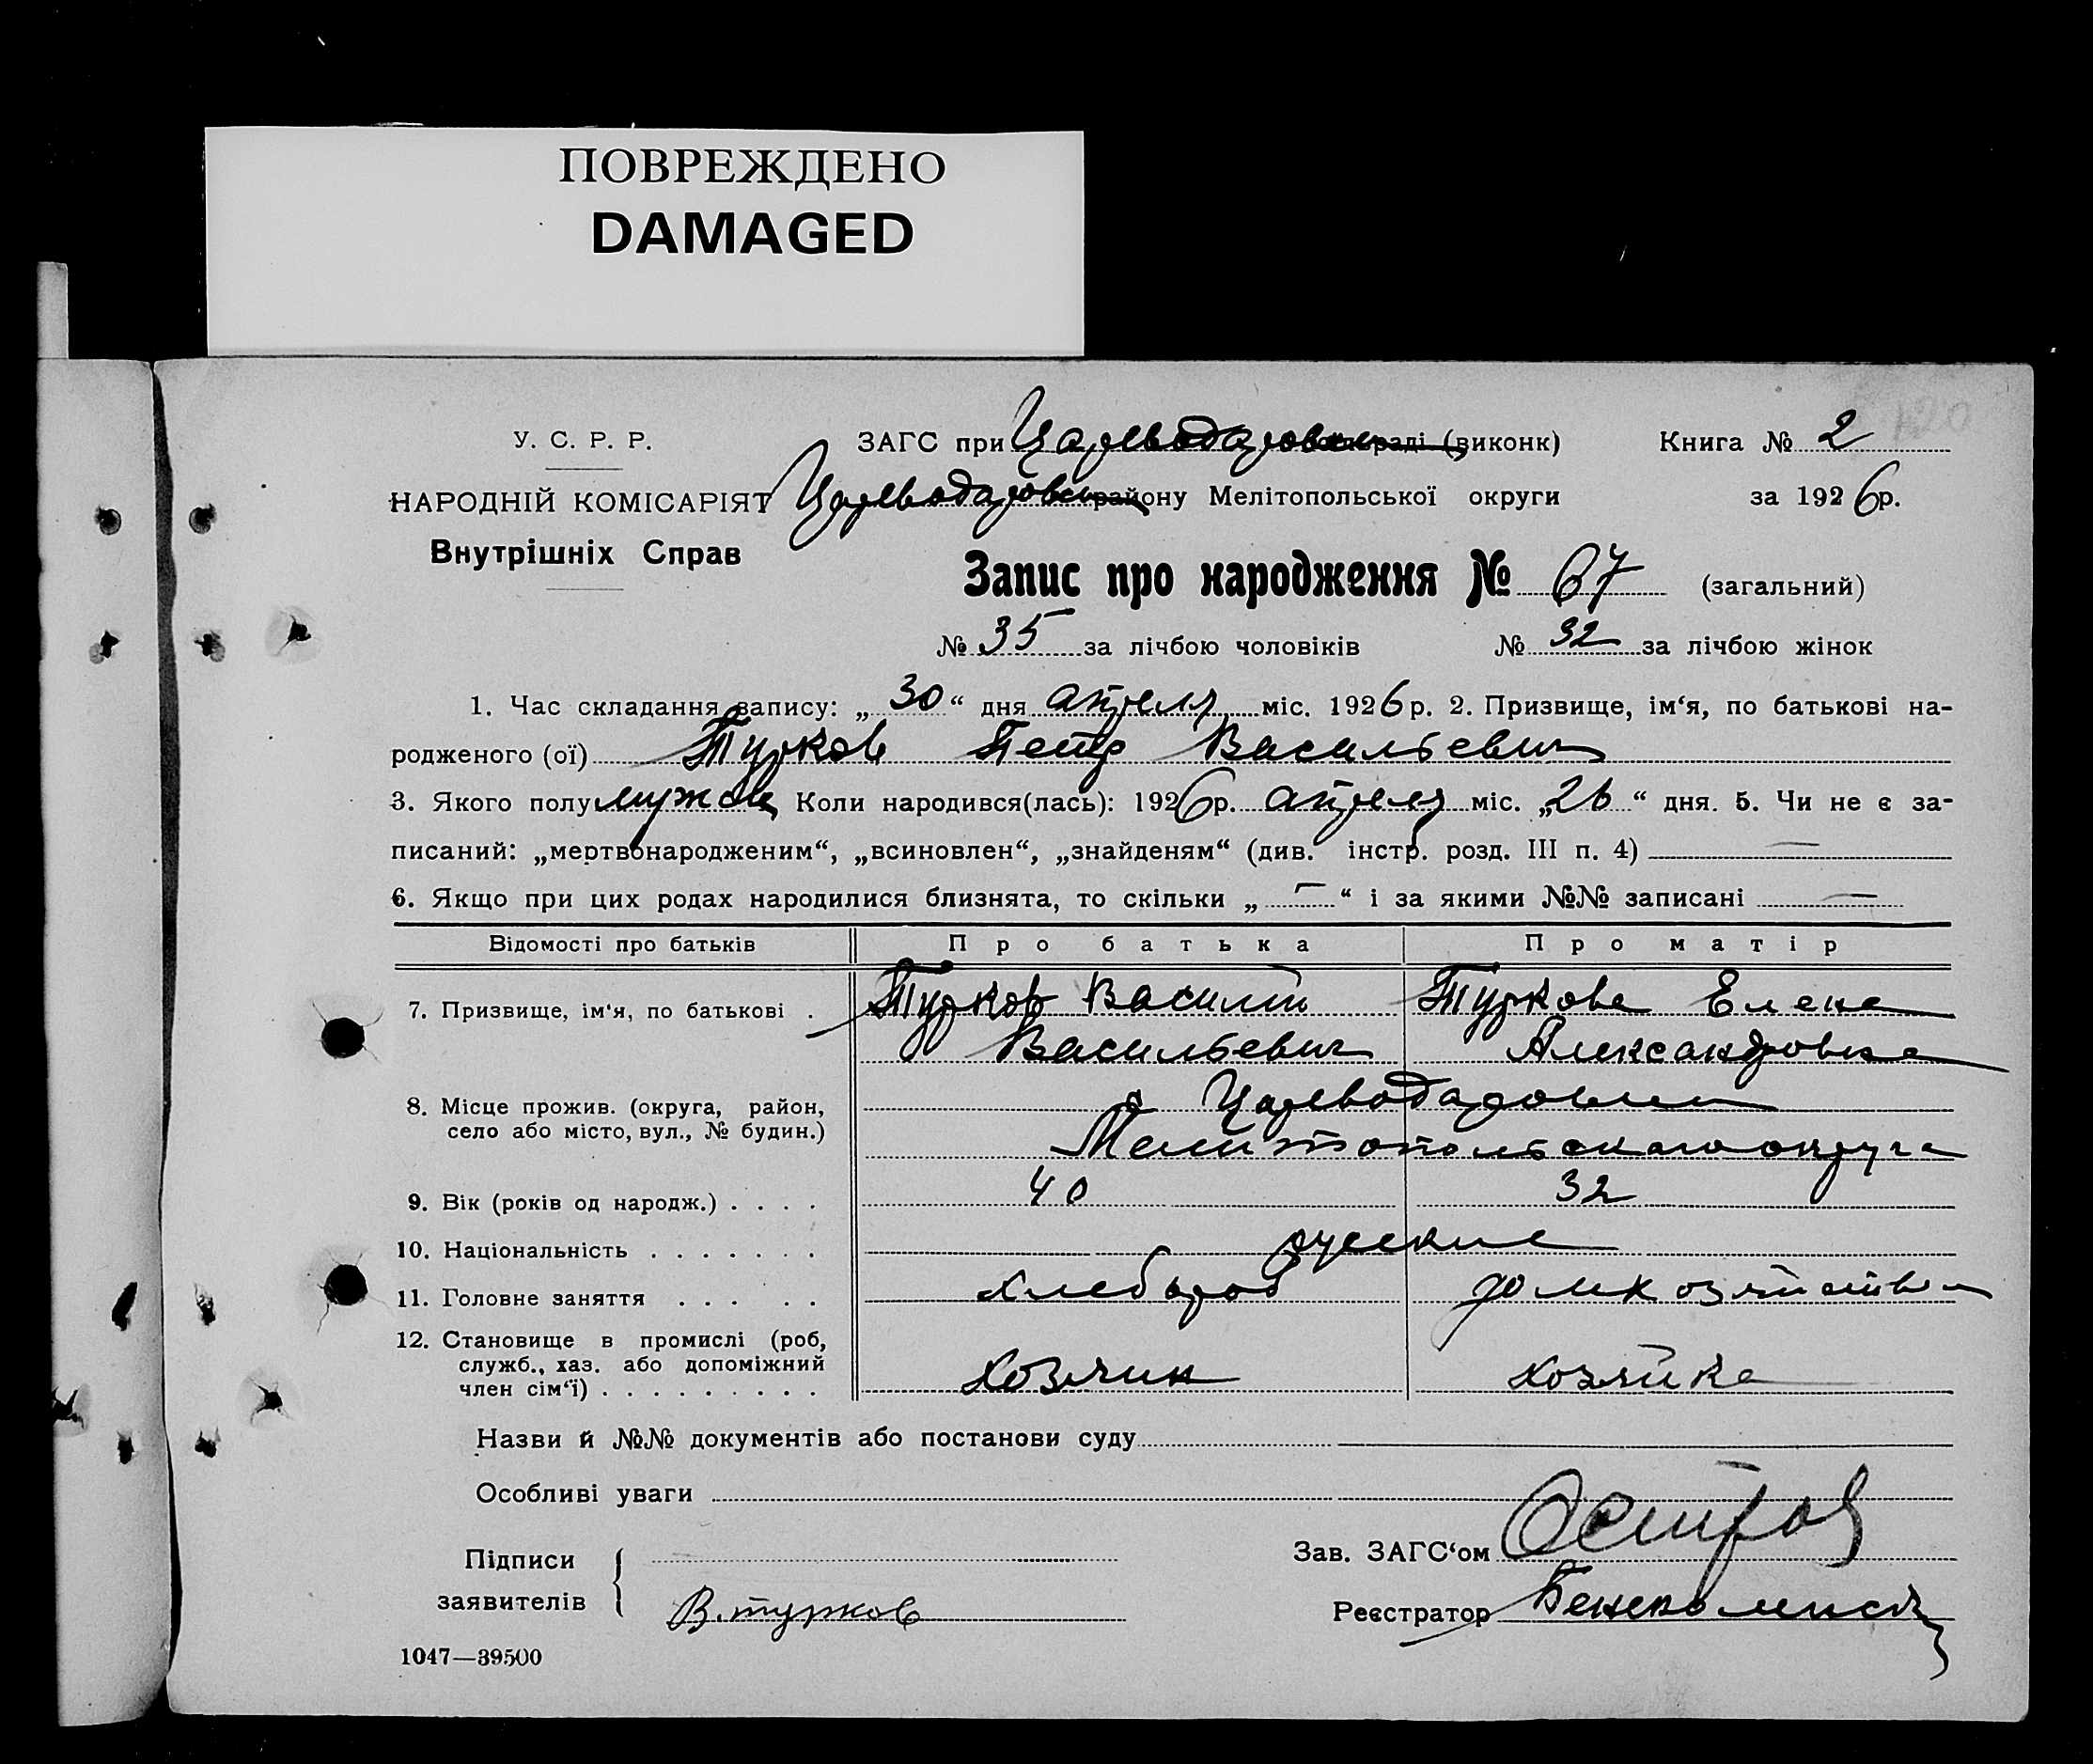 ПОВРЕЖДЕНО
DAMAGED
120
У. С. Р. Р.
ЗАГС при Царевода­ровск сельраді (виконк)
Книга № 2
НАРОДНІЙ КОМІСАРІЯТ
Внутрішніх Справ
Цареводаровск району Мелітопольської округи
за 1926 р.
Запис про народження № 67 (загальний)
№ 35 за лічбою чоловіків
№ 32 за лічбою жінок
1. Час складання запису: „ 30 “ дня апреля міс. 1926 р. 2. Призвище, ім‘я, по батькові на-
родженого (ої) Турков Петр Васильевич
3. Якого полу мужск Коли народився(лась): 1926 р. апреля міс. „ 26 “ дня. 5. Чи не є за-
писаний: „мертвонародженим“, „всиновлен“, „знайденям“ (див. інстр. розд. III п. 4) —
6. Якщо при цих родах народилися близнята, то скільки „ — “ і за якими №№ записані —
Відомості про батьків
Про батька
Про матір
7. Призвище, ім‘я, по батькові .
Турков Василий
Васильевич
Туркова Елена
Александровна
8. Місце прожив. (округа, район,
село або місто, вул., № будин.)
с Цареводаровки
Мелитопольскаго округа
9. Вік (років од народж.) . . . .
40
32
10. Національність . . . . . . .
русские
11. Головне заняття . . . . .
хлебороб
домхозяйство
12. Становище в промислі (роб,
служб., хаз. або допоміжний
член сім‘ї) . . . . . . . . .
хозяин
хозяйка
Назви й №№ документів або постанови суду
Особливі уваги
Підписи
заявителів
В. турков
Зав. ЗАГС‘ом
Реєстратор
1047—39500